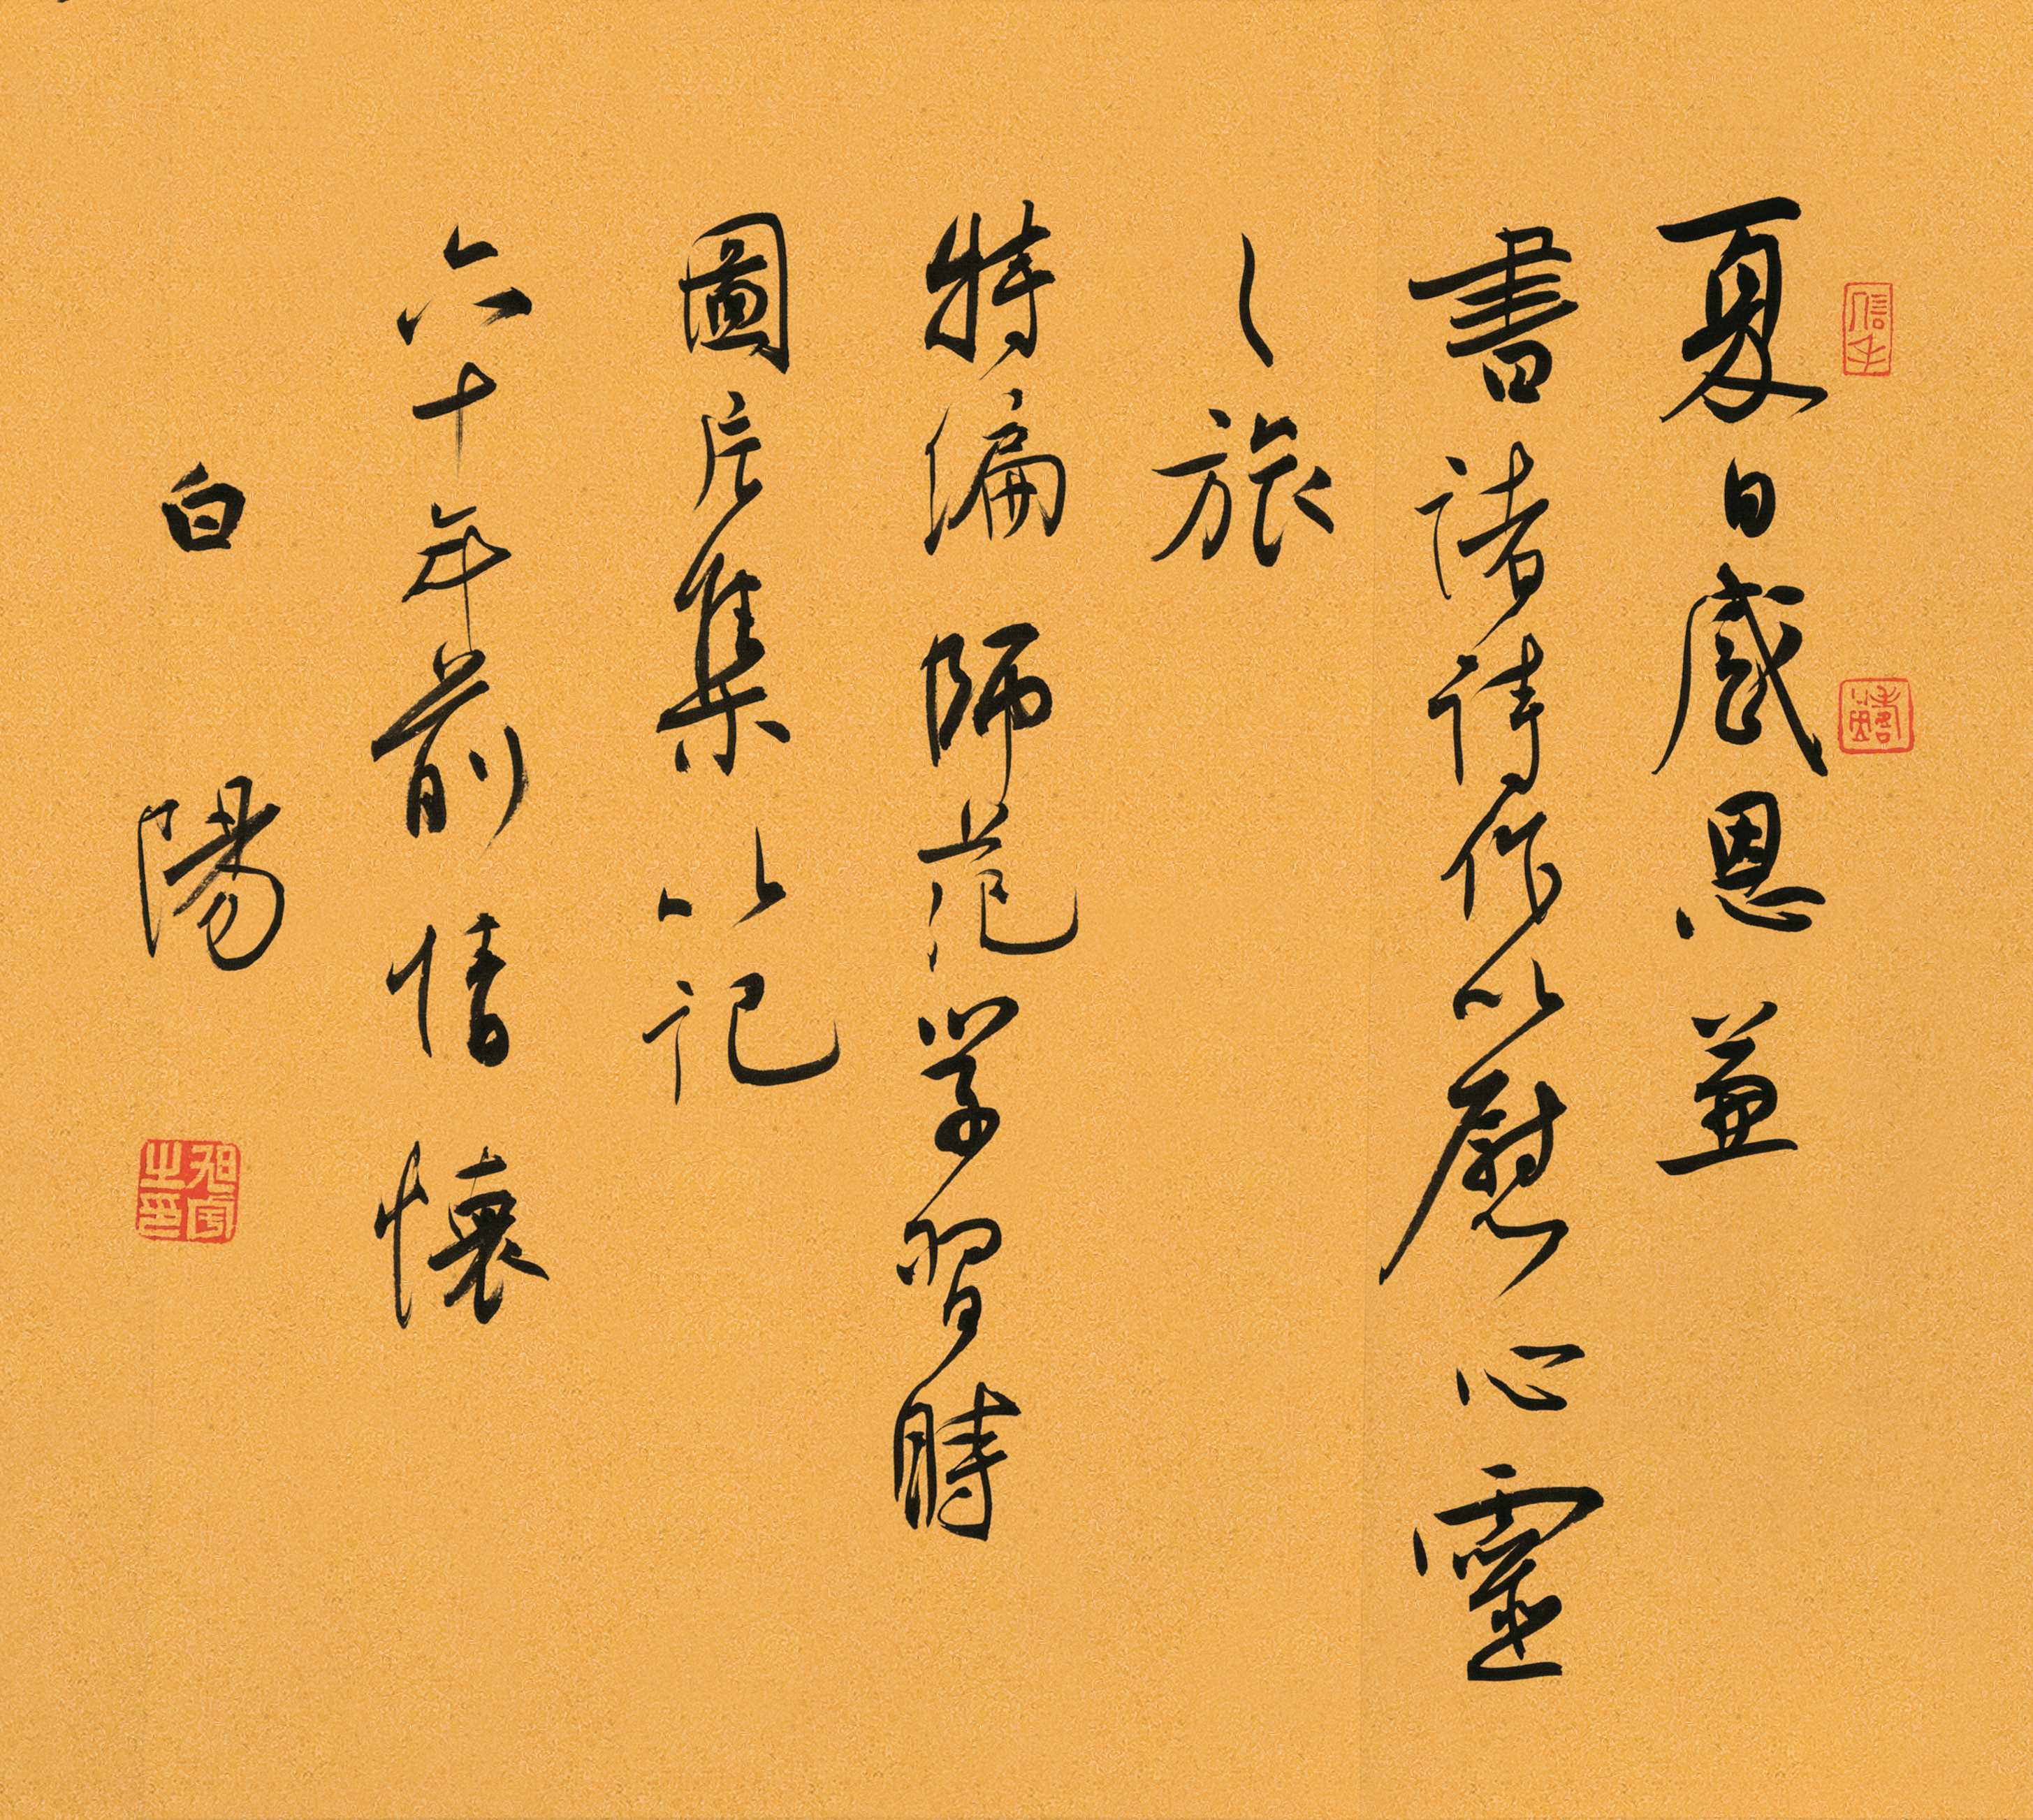 夏日感恩並
書諸詩作以慰心靈
之旅
特編師范学習時
圖片集以記
六十年前情懷
白陽
信手
之印